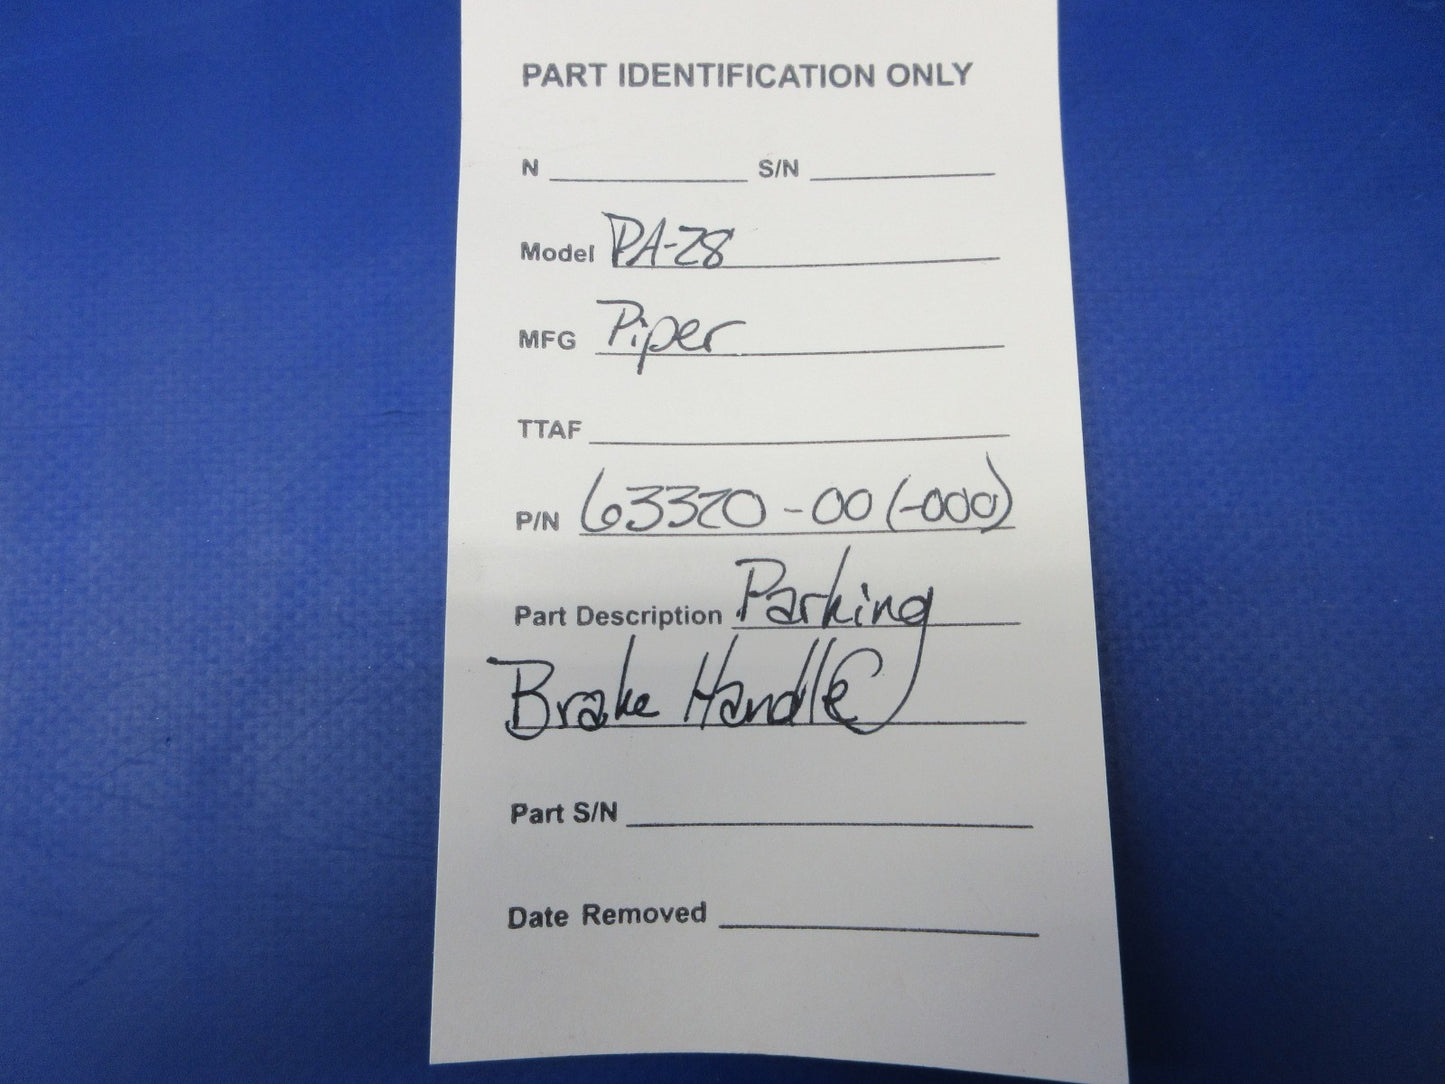 PART IDENTIFICATION ONLY
N S/N
Model PA-28
MFG Piper
TTAF
P/N 63320-00 (-000)
Part Description Parking
Brake Handle
Part S/N
Date Removed